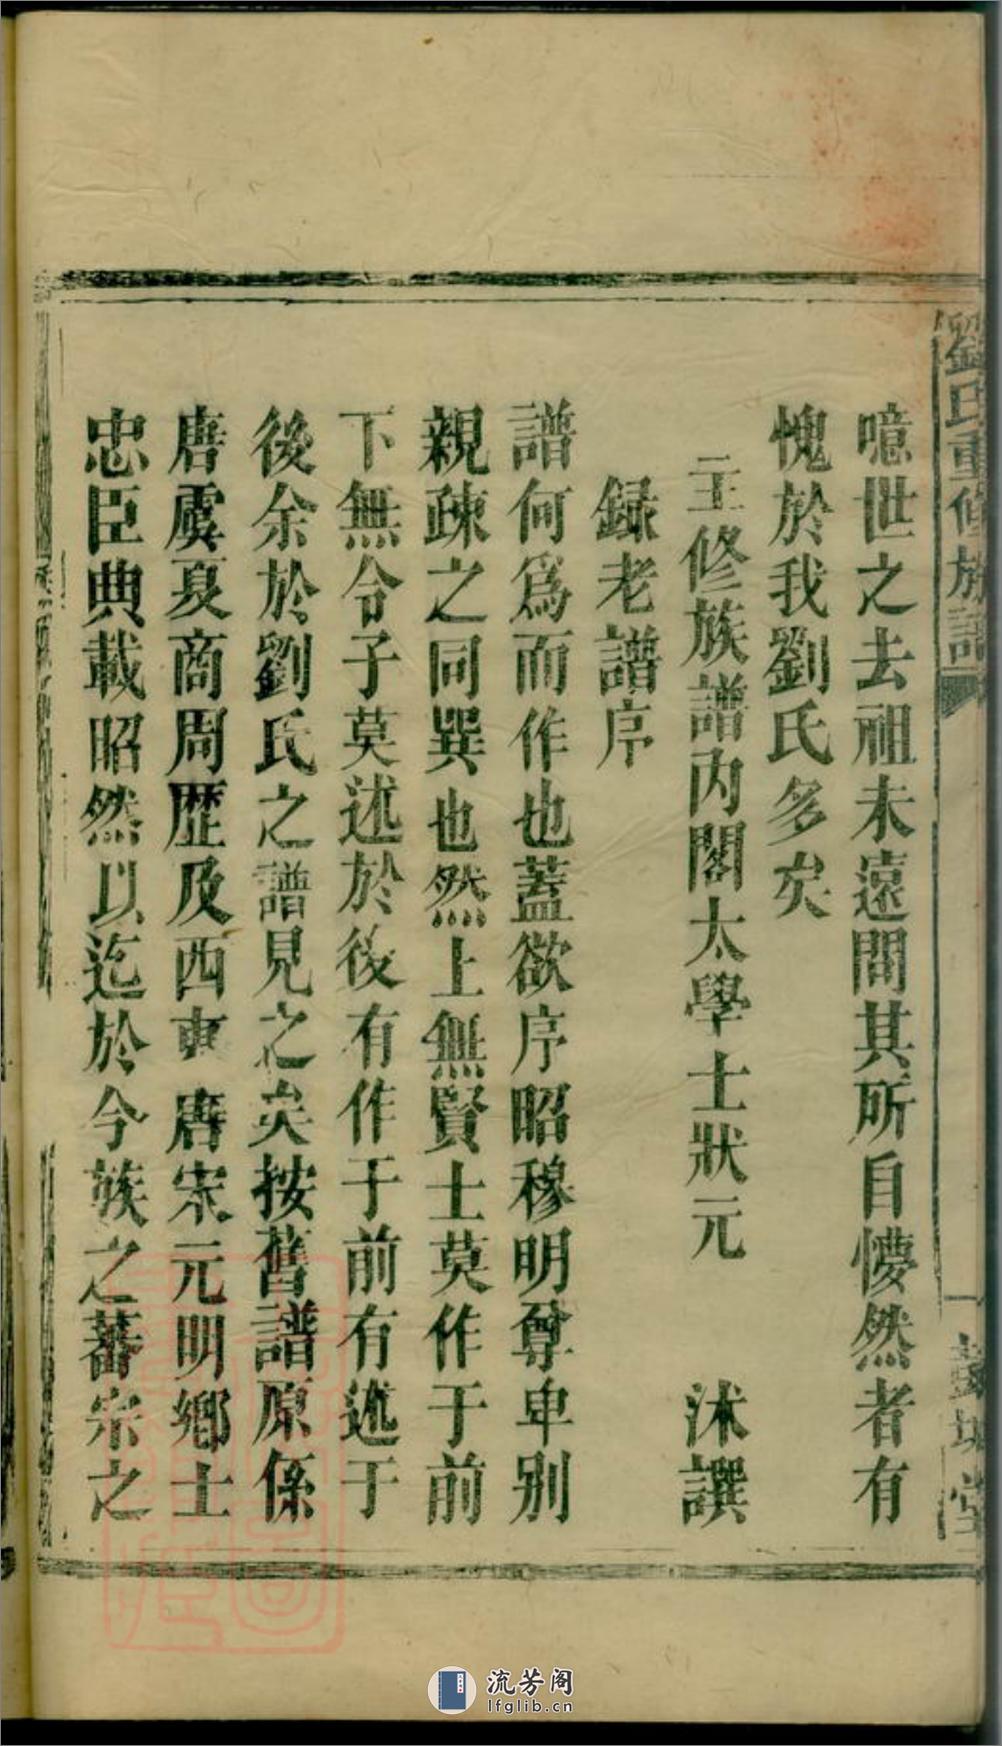 劉氏重修族譜
一
彭城堂
噫世之去祖未遠問其所自懜然者有
愧於我劉氏多矣
二主修族譜內閣太學士狀元　沭撰
録老譜序
譜何爲而作也蓋欲序昭穆明尊卑别
親疎之同巽也然上無賢士莫作于前
下無令子莫述於後有作于前有述于
後余於劉氏之譜見之矣按舊譜原係
唐虞夏商周歴及西東唐宋元明鄉士
忠臣典載昭然以迄於今蔟之蕃宗之
流芳阁
lfglib.cn